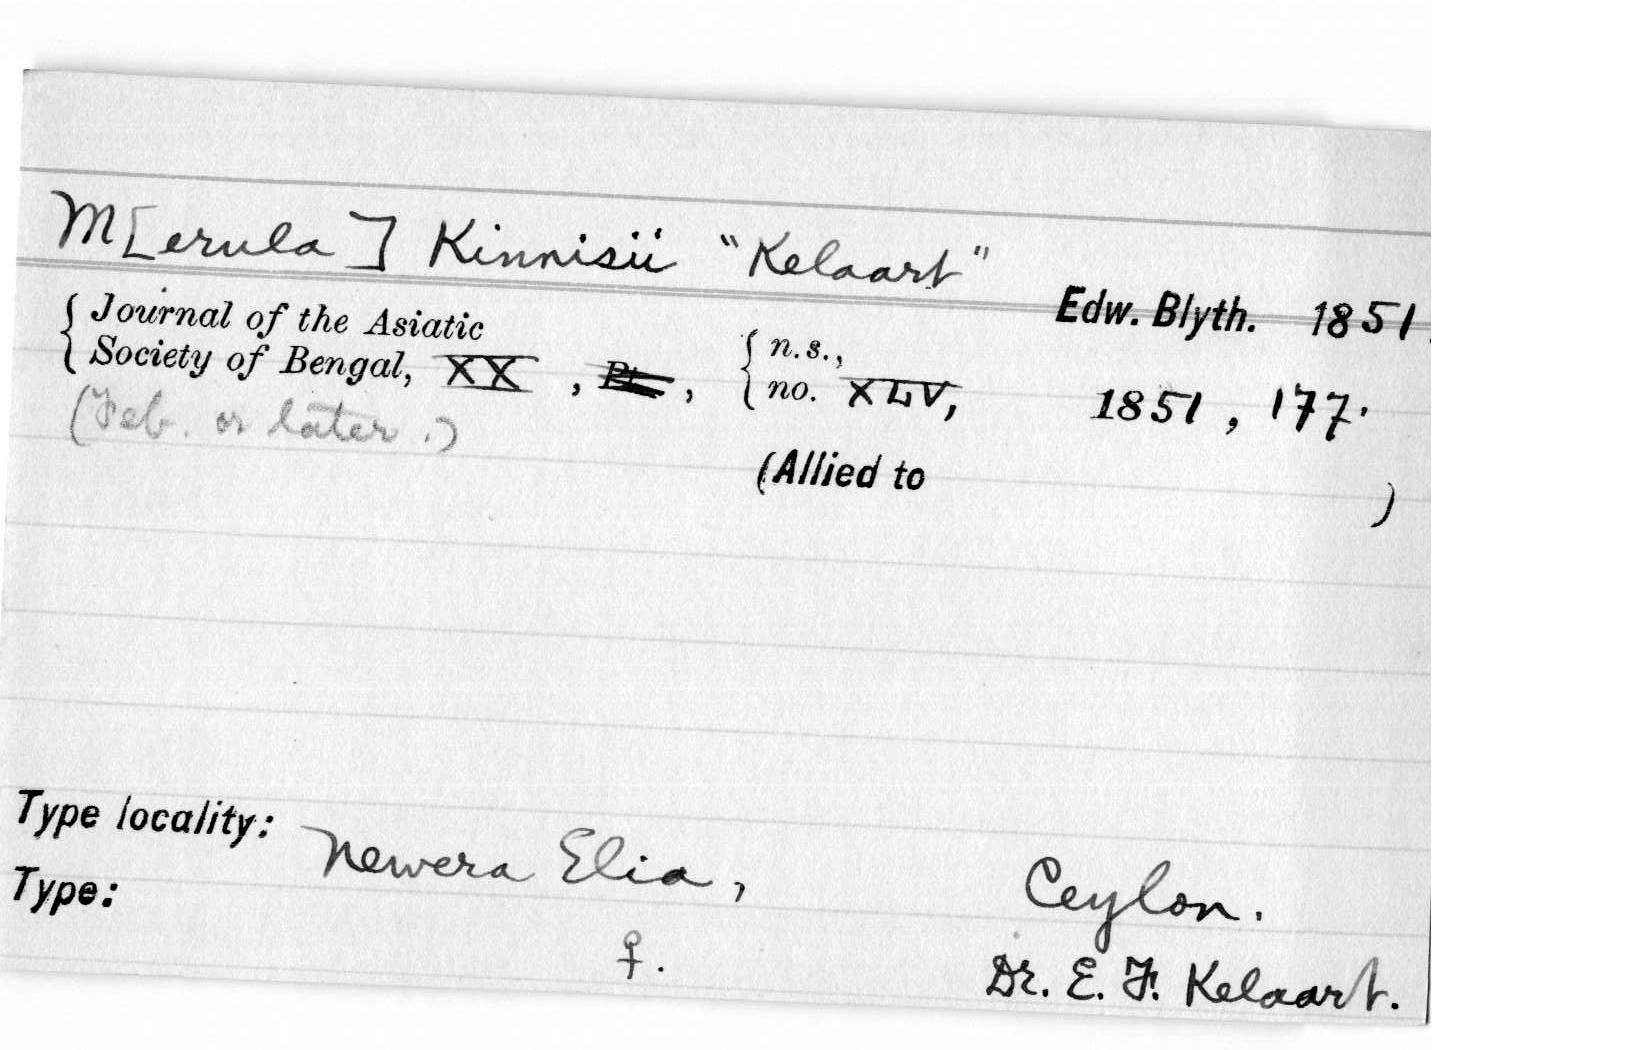 M[erula] Kinnisii "Kelaart"
Edw. Blyth. 1851.
{ Journal of the Asiatic
Society of Bengal, XX , Pt. , { n.s.,
no. XLV, 1851, 177.
(Feb. or later.)
(Allied to )
Type locality: Newera Elia, Ceylon.
Type: ♀. Dr. E. F. Kelaart.